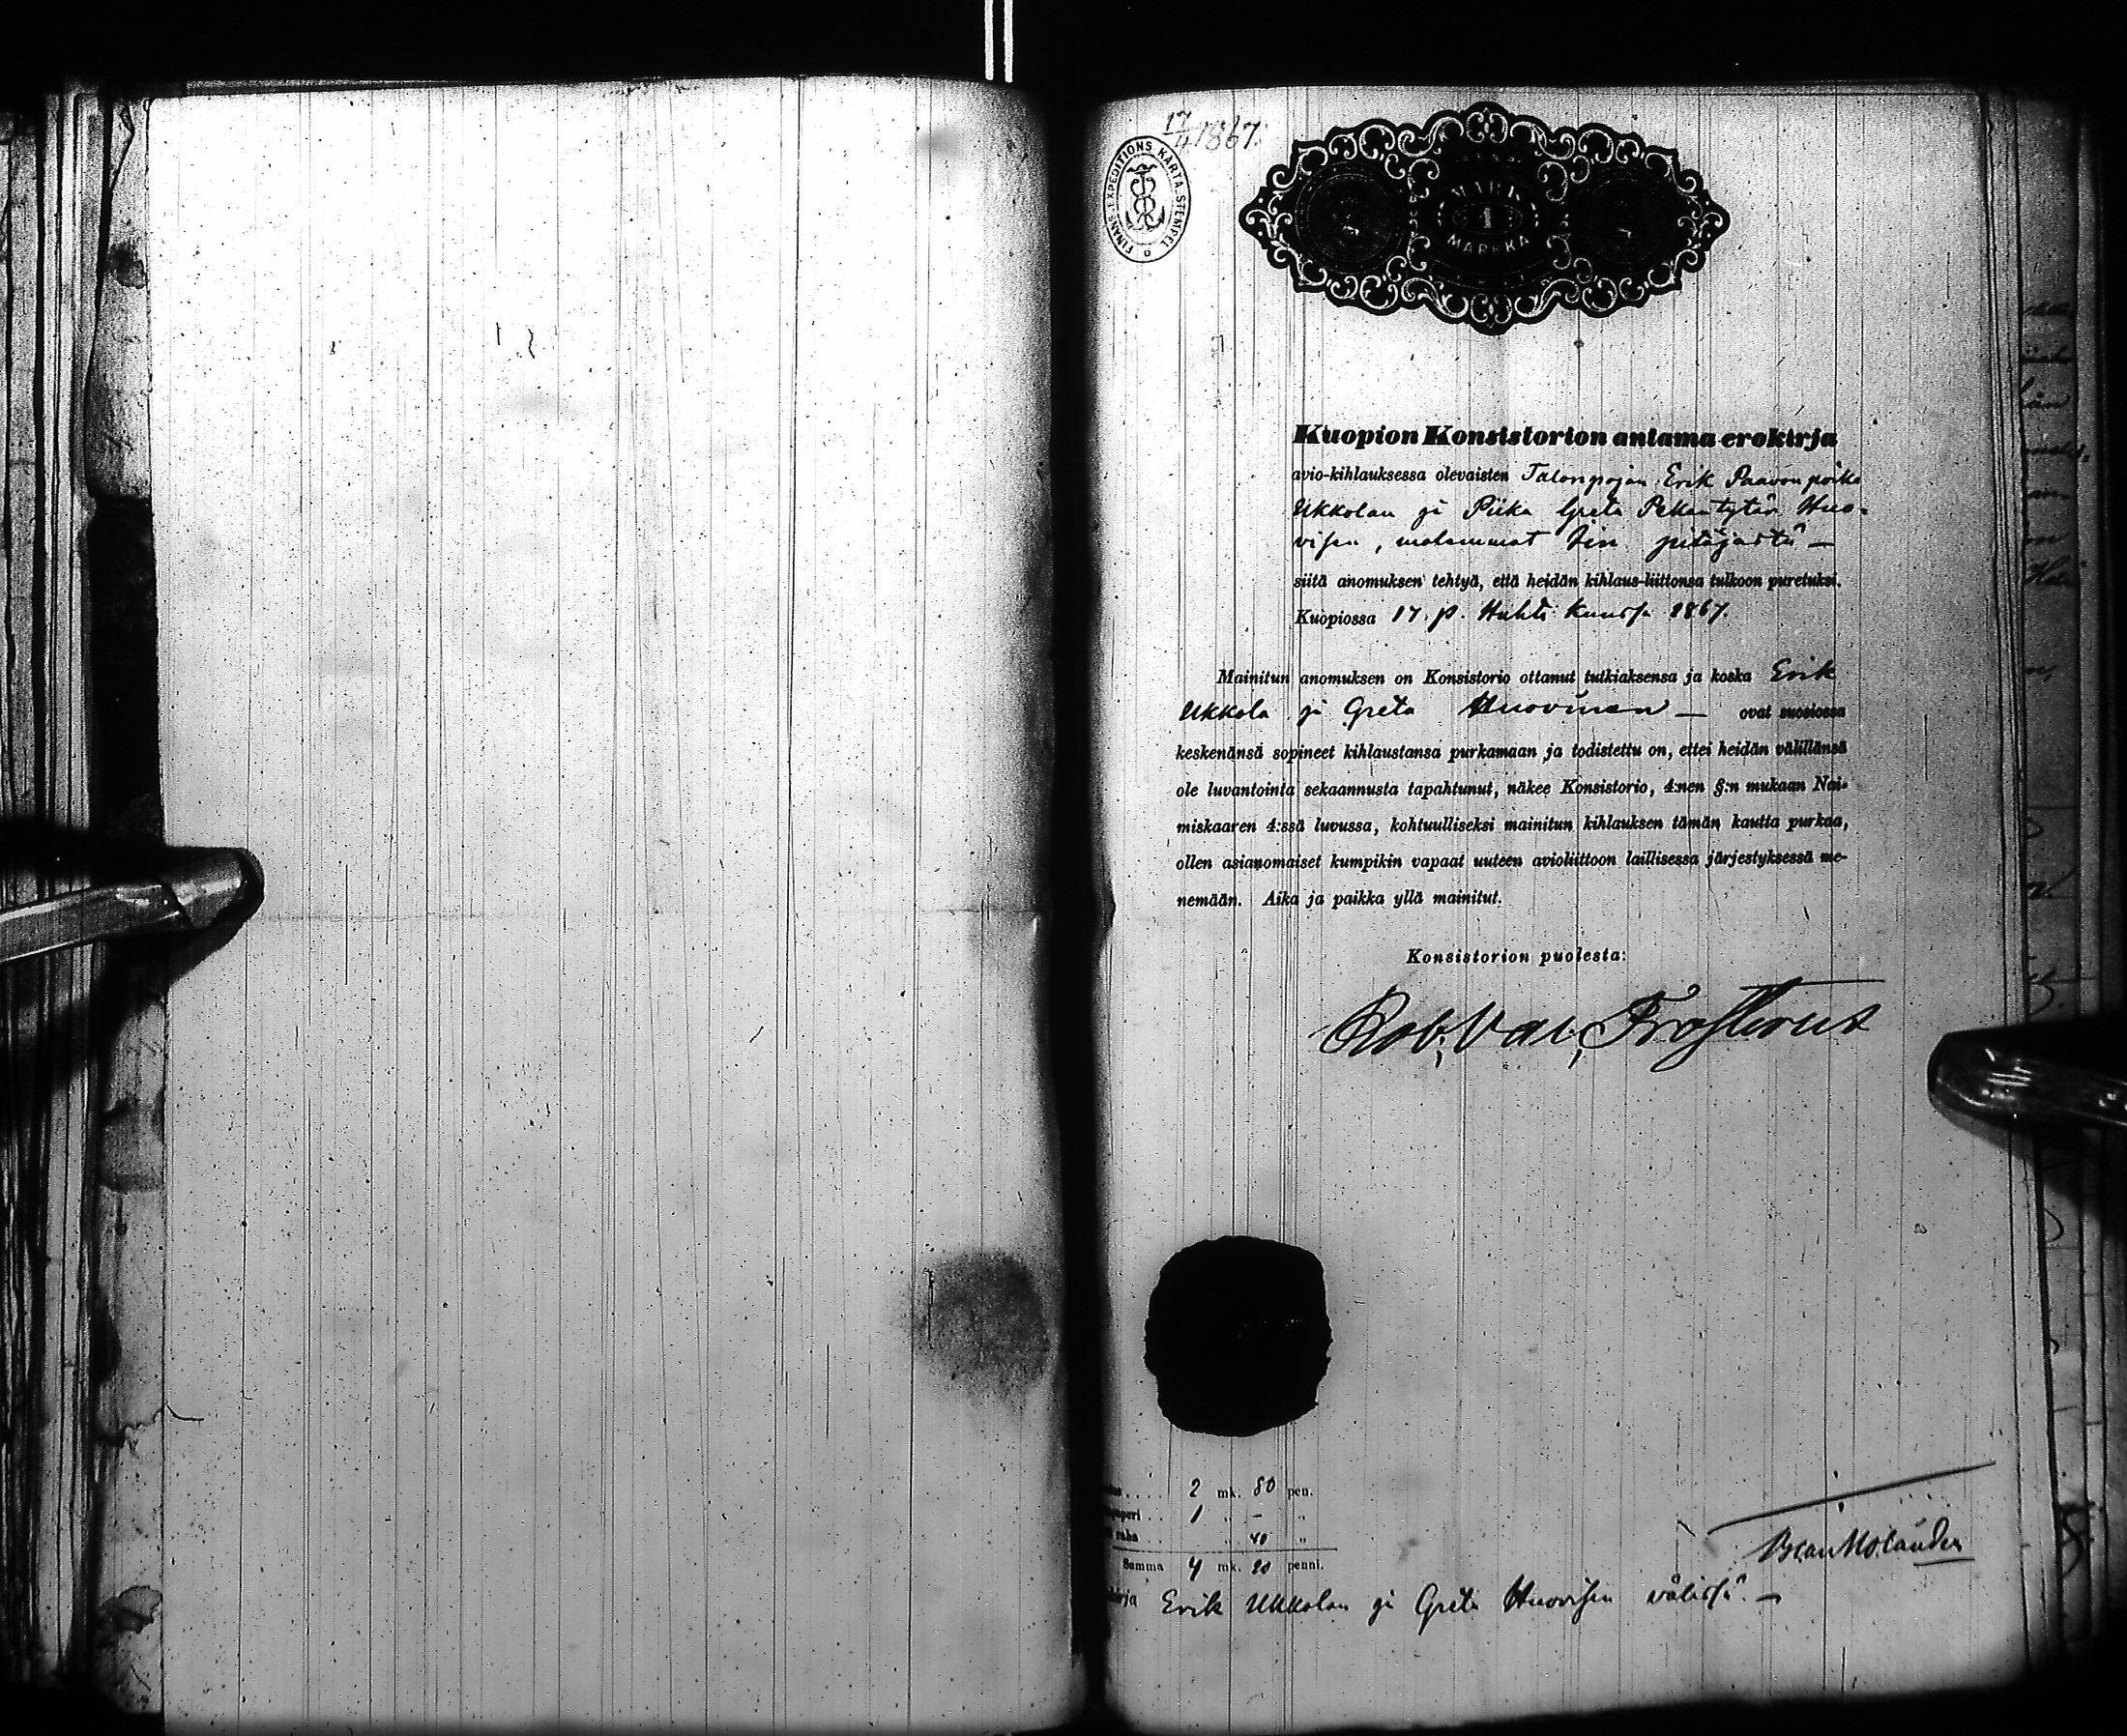 17/4 1867.
FINANS-EXPEDITIONS KARTA-STEMPEL
MARK
1
MARKKA
Kuopion Konsistorion antama erokirja
avio-kihlauksessa olevaisten Talonpojan Erik Paavonpoika
Ukkolan ja Piika Greta Pekantytär Huo-
visen, molemmat Iin pitäjästä —
siitä anomuksen tehtyä, että heidän kihlaus-liittonsa tulkoon puretuksi.
Kuopiossa 17. p. Huhti kuussa 1867.
Mainitun anomuksen on Konsistorio ottanut tutkiaksensa ja koska Erik
Ukkola ja Greta Huovinen — ovat suosiossa
keskenänsä sopineet kihlaustansa purkamaan ja todistettu on, ettei heidän välillänsä
ole luvantointa sekaannusta tapahtunut, näkee Konsistorio, 4:nen §:n mukaan Nai-
miskaaren 4:ssä luvussa, kohtuulliseksi mainitun kihlauksen tämän kautta purkaa,
ollen asianomaiset kumpikin vapaat uuteen avioliittoon laillisessa järjestyksessä me-
nemään. Aika ja paikka yllä mainitut.
Konsistorion puolesta:
Rob. Val. Frosterus
2 mk. 80 pen.
1 „ – „
raha „ 40 „
Summa 4 mk. 20 penni.
Molander
Erik Ukkolan ja Greta Huovisen välissä. —